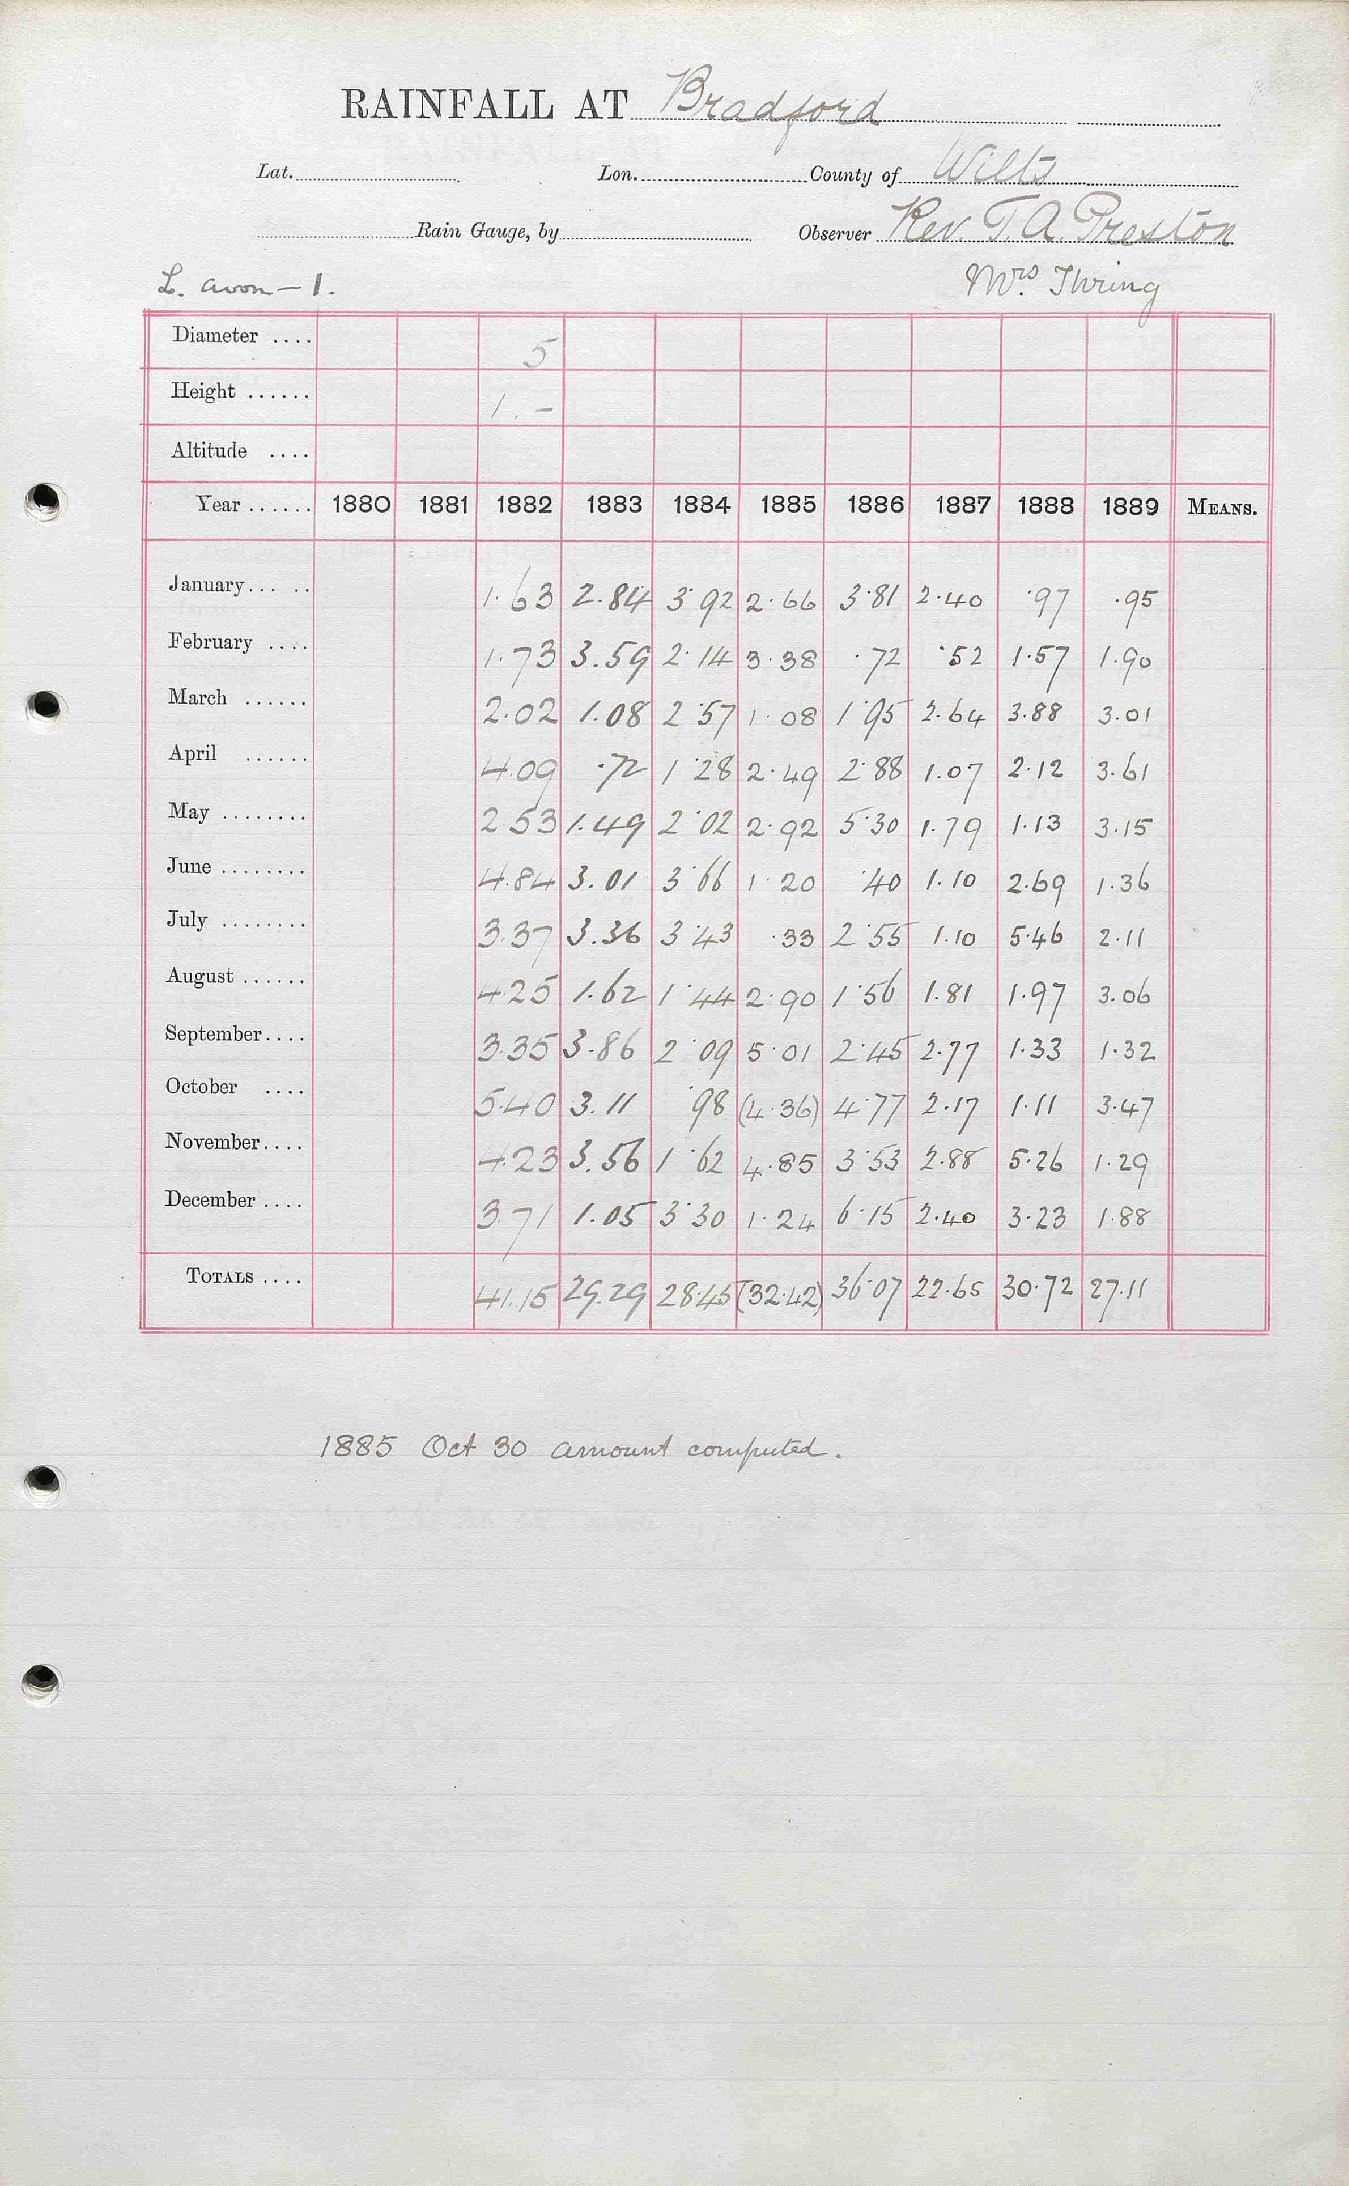 RAINFALL AT Bradford
Lat. Lon. County of Wilts
Rain Gauge, by Observer Rev. T. A. Preston
L. Avon – 1. Mrs. Thring
Diameter .... 5
Height ...... 1. –
Altitude ....
Year ...... 1880 1881 1882 1883 1884 1885 1886 1887 1888 1889 MEANS.
January... .. 1.63 2.84 3.92 2.66 3.81 2.40 .97 .95
February .... 1.73 3.59 2.14 3.38 .72 .52 1.57 1.90
March ...... 2.02 1.08 2.57 1.08 1.95 2.64 3.88 3.01
April ...... 4.09 .72 1.28 2.49 2.88 1.07 2.12 3.61
May ........ 2.53 1.49 2.02 2.92 5.30 1.79 1.13 3.15
June ........ 4.84 3.01 3.66 1.20 .40 1.10 2.69 1.36
July ........ 3.37 3.36 3.43 .33 2.55 1.10 5.46 2.11
August ...... 4.25 1.62 1.44 2.90 1.56 1.81 1.97 3.06
September.... 3.35 3.86 2.09 5.01 2.45 2.77 1.33 1.32
October .... 5.40 3.11 .98 (4.36) 4.77 2.17 1.11 3.47
November.... 4.23 3.56 1.62 4.85 3.53 2.88 5.26 1.29
December .... 3.71 1.05 3.30 1.24 6.15 2.40 3.23 1.88
TOTALS .... 41.15 29.29 28.45 (32.42) 36.07 22.65 30.72 27.11
1885 Oct 30 amount computed.